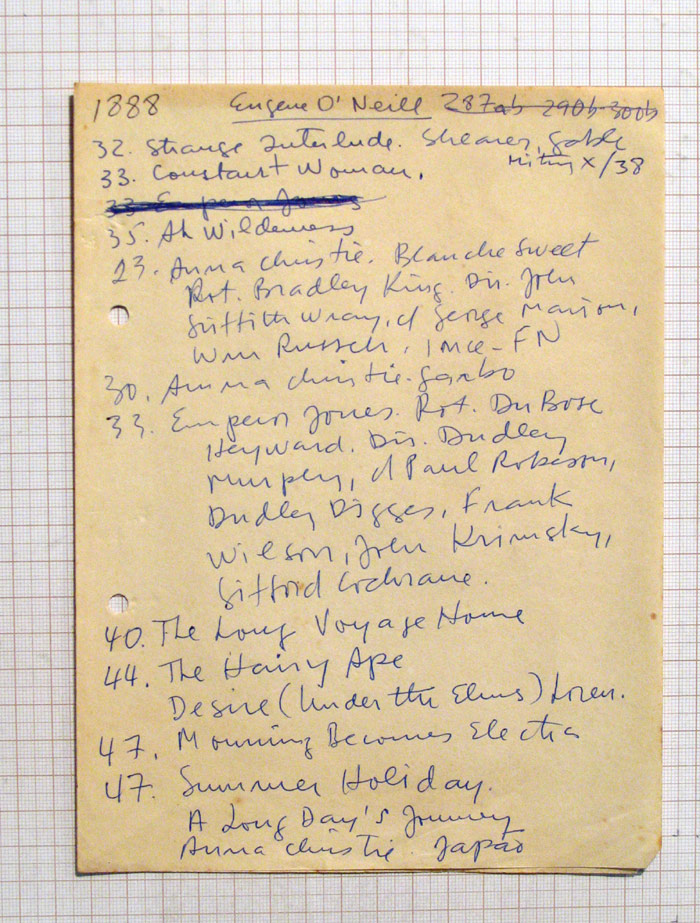 1888 Eugene O'Neill 287ab 290b-300b
32. Strange Interlude. Shearer, Gable
X/38
33. Constant Woman.
33 Emperor Jones
35. Ah Wilderness
23. Anna Christie. Blanche Sweet
Rot. Bradley King. Dir. John
Griffith Wray, d George Marion,
Wm Russell, Ince-FN
30. Anna Christie. Garbo
33. Emperor Jones. Rot. DuBose
Heyward. Dir. Dudley
Murphy, d Paul Robeson,
Dudley Digges, Frank
Wilson, John Krimsky,
Gifford Cochrane.
40. The Long Voyage Home
44. The Hairy Ape
Desire (Under the Elms) Loren.
47. Mourning Becomes Electra
47. Summer Holiday.
A Long Day's Journey
Anna Christie. Japão